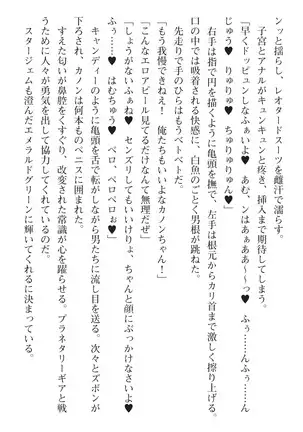 ンッと揺らし、レオタードスーツを雌汁で濡らす。
子宮とアナルがキュンキュンと疼き、挿入まで期待してしまう。
「早くドッピュンしなっふぁいよ♥ あむ、ンはぁぁあ～～っ♥ ふぅ……んふぅぅ……ん
じゅう♥ りゅりゅ♥ ちゅりゅりゅん♥」
右手は指で円を描くように亀頭を撫で、左手は根元からカリ首まで激しく擦り上げる。
口の中では吸着される快感に、白魚のごとく男根が跳ねた。
先走りで手のひらはもうベトベトだ。
「もう我慢できねぇ！ 俺たちもいいよなカノンちゃん！」
「こんなエロアピール見てるだけなんて無理だぜ」
「しょうがないふぁね♥ センズリしてもいいけりょ、ちゃんと顔にぶっかけなさいよ♥
ふぅ……♥ はむちゅう♥ ペロ、ペロペロぉ♥」
キャンディーのように亀頭を舌で転がしながら男たちに流し目を送る。次々とズボンが
下ろされ、カノンは何本ものペニスに囲まれた。
すえた匂いが鼻腔をくすぐり、改変された常識が心を躍らせる。プラネタリーギアと戦
うために人々が勇気を出して協力してくれているのだ。
スタージェムも澄んだエメラルドグリーンに輝いてくれるに決まっている。